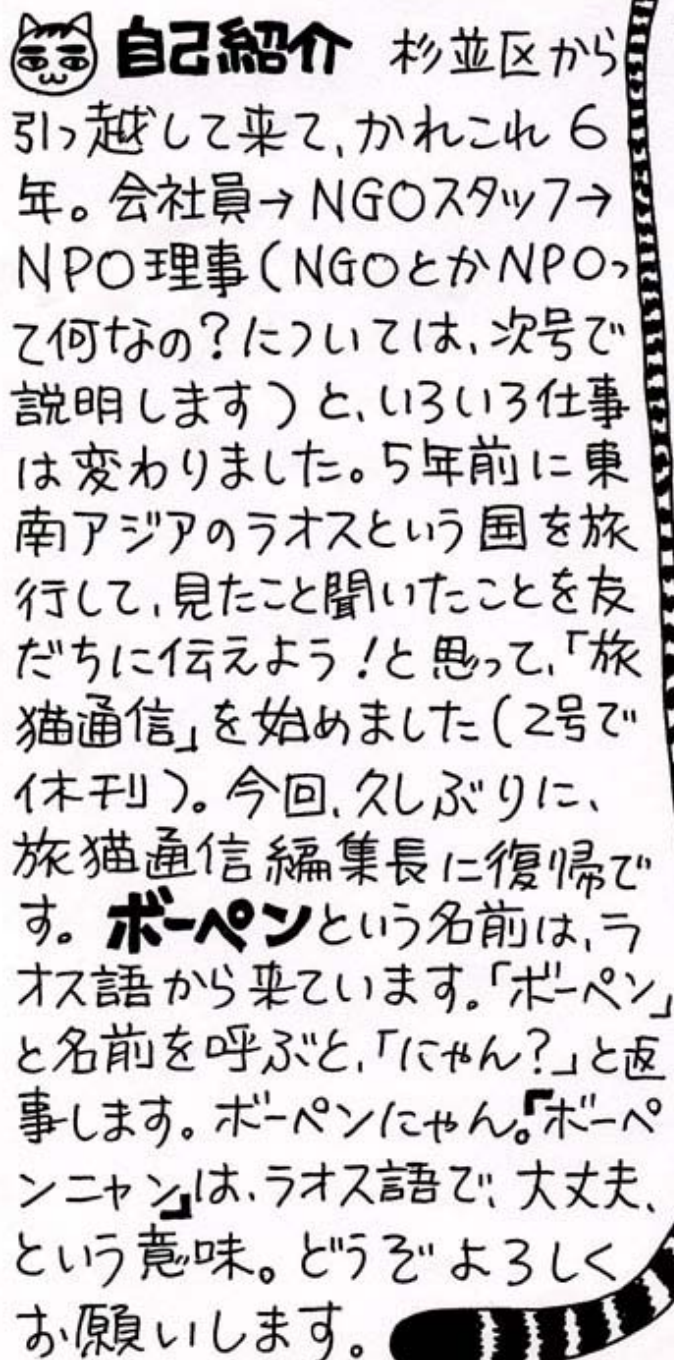 自己紹介 杉並区から
引っ越して来て、かれこれ6
年。会社員→NGOスタッフ→
NPO理事(NGOとかNPOっ
て何なの?については、次号で
説明します)と、いろいろ仕事
は変わりました。5年前に東
南アジアのラオスという国を旅
行して、見たこと聞いたことを友
だちに伝えよう!と思って、「旅
猫通信」を始めました(2号で
休刊)。今回、久しぶりに、
旅猫通信編集長に復帰で
す。ボーペンという名前は、ラ
オス語から来ています。「ボーペン」
と名前を呼ぶと、「にゃん?」と返
事します。ボーペンにゃん。『ボーペ
ンニャン』は、ラオス語で、大丈夫、
という意味。どうぞよろしく
お願いします。